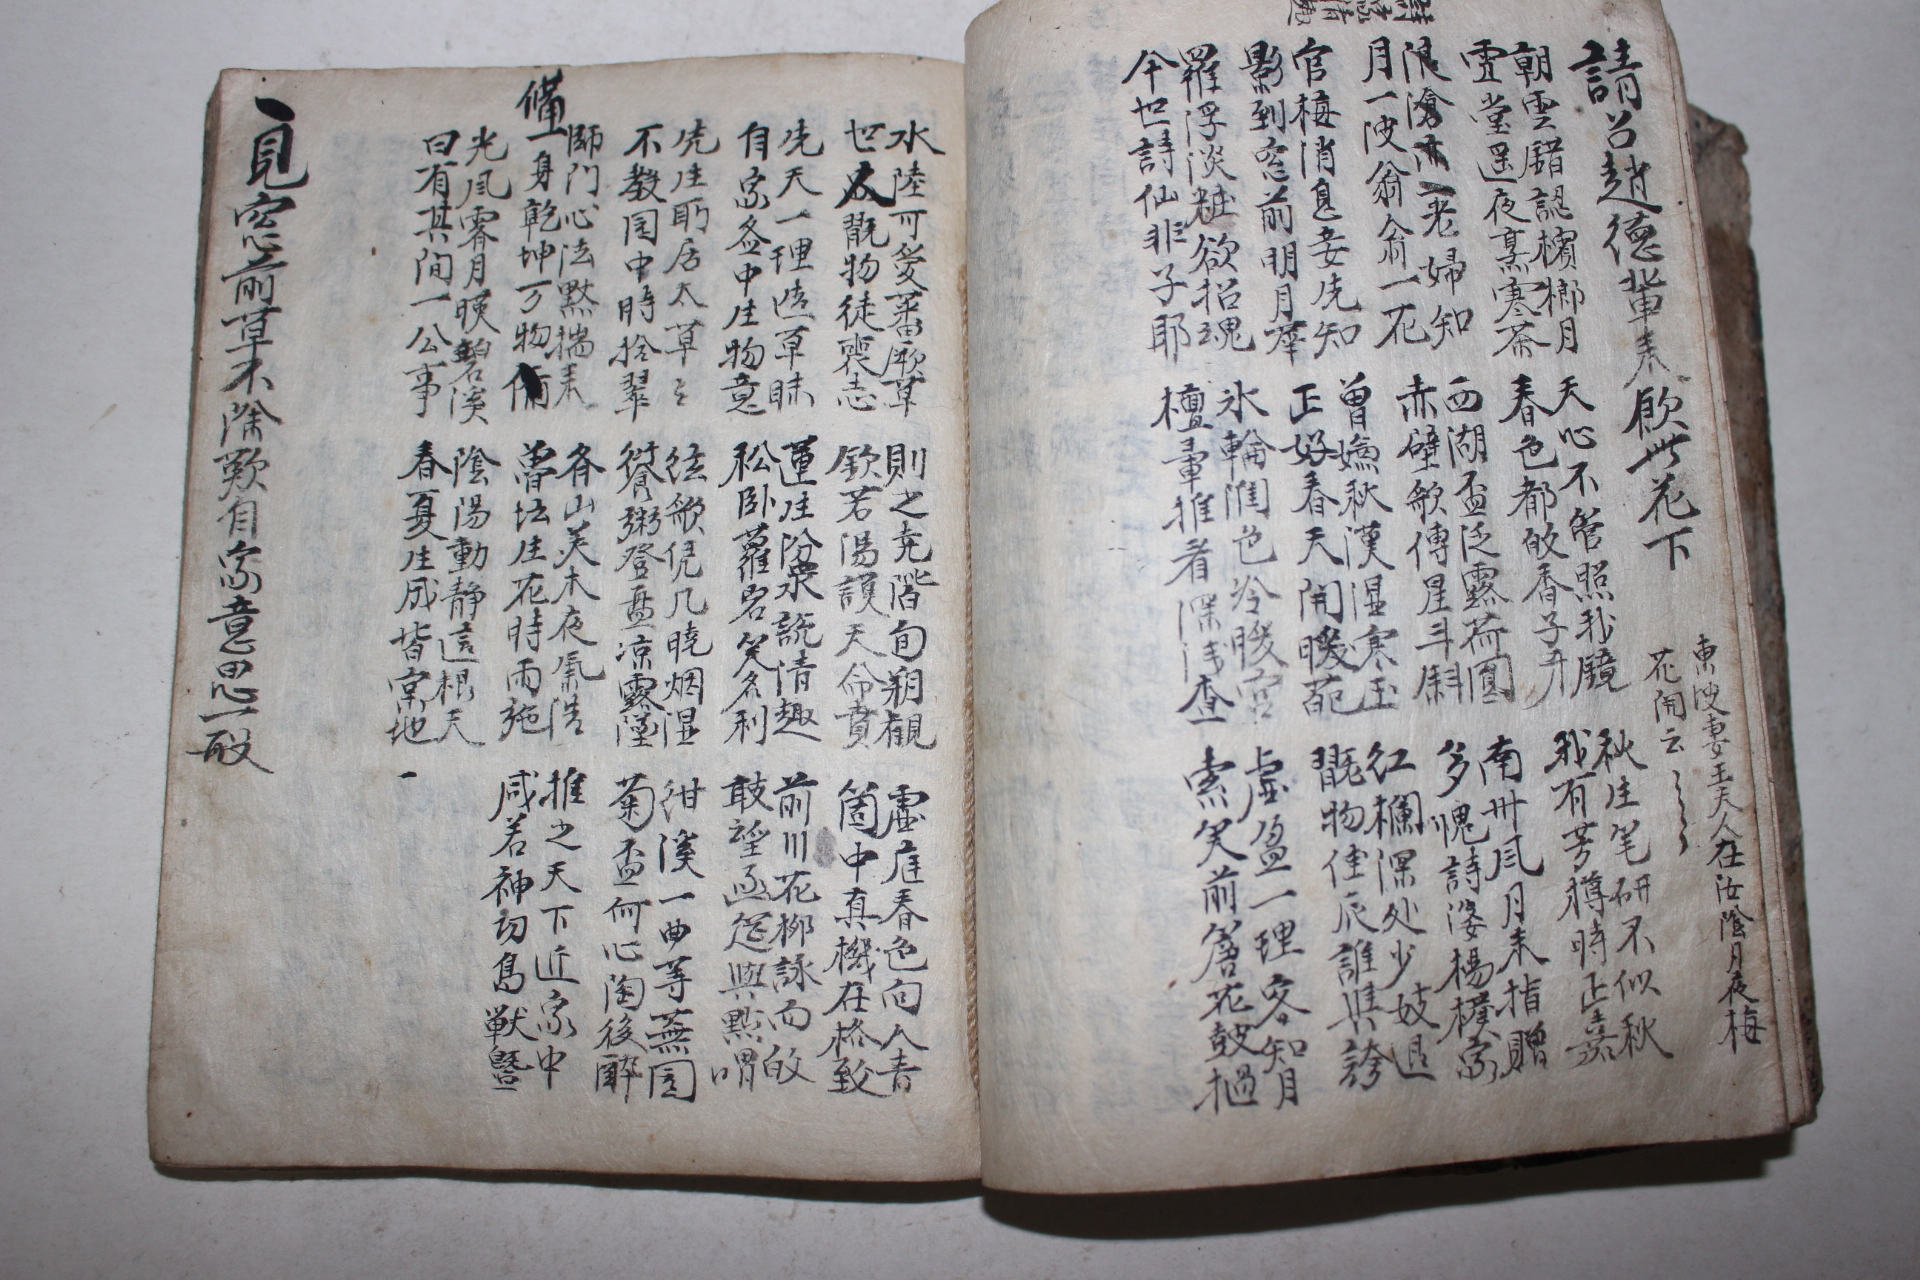 請召趙德輩來飮此花下
東坡妻王夫人在汝陰月夜梅
花開云〻〻
朝雲錯認檳榔月
雪堂遥夜烹寒茶
天心不管照我鏡
春色都的香子丹
秋生笔研不似秋
我有芳樽時正嘉
浪滄亦一老婦知
月一波翁翁一花
西湖盃泛露荷圓
赤壁歌傳星斗斜
南州風月未指贈
多愧詩婆楊樸家
官梅消息妾先知
影到窓前明月華
曾嫌秋漢湿寒玉
正好春天開暖葩
红欄深处少妓退
翫物佳辰誰與誇
羅浮淡粧欲招魂
今世詩仙非子耶
氷輪閏色冷暖宮
檀暈推看深浅查
虚盈一理客知月
索笑前簷花鼓檛
水陸可愛蕃厥草
世人翫物徒喪志
則之尭階旬朔觀
欽若湯謨天命賁
虚庭春色向人青
箇中真機在格致
先天一理造草昧
自家盆中生物意
蓮生汾泉説清趣
松卧蘿岩笑名利
前川花柳詠而的
敢望函筵與點喟
先生所居太草〻
不教園中時拾翠
弦歌凭几曉烟湿
粥登盃凉露墜
紺溪一曲等蕪園
菊盃何心陶後醉
備
師門心法黙揣来
一身乾坤万物備
春山美木夜氣浩
魯坛生花時雨施
推之天下近家中
咸若神功鳥獸曁
光風霽月暎碧溪
曰有其间一公事
陰陽動静這根天
春夏生成皆常地
見窓前草不除歎自家意思一般